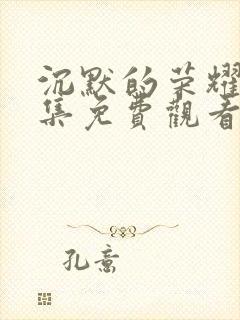 沉默的荣耀
集免費觀看
孔意